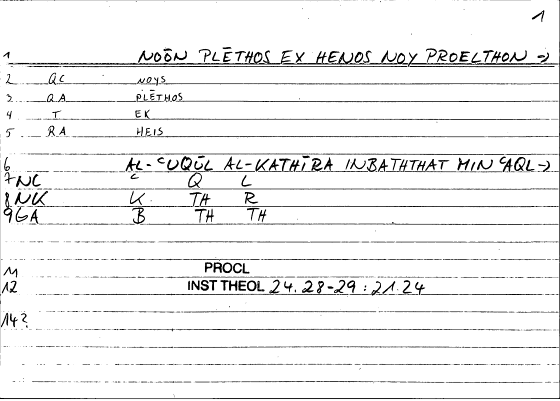 1
1 NOŌN PLĒTHOS EX HENOS NOY PROELTHON →
2 QC NOYS
3 QA PLĒTHOS
4 T EK
5 RA HEIS
6 AL-ᶜUQŪL AL-KATHĪRA INBATHTHAT MIN ᶜAQL→
7 NC ᶜ Q L
8 NK K TH R
9 GA B TH TH
11 PROCL
12 INST THEOL 24.28-29:21.24
14?